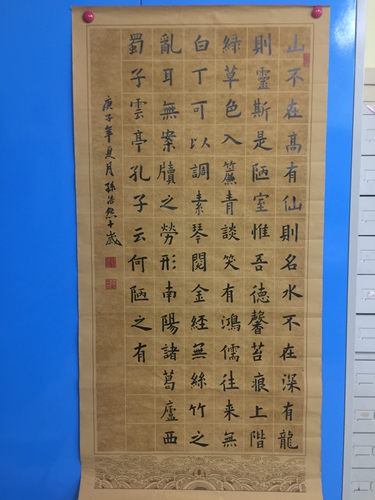 山不在高有仙則名水不在深有龍
則靈斯是陋室惟吾德馨苔痕上階
綠草色入簾青談笑有鴻儒往來無
白丁可以調素琴閱金經無絲竹之
亂耳無案牘之勞形南陽諸葛廬西
蜀子雲亭孔子云何陋之有
庚子年夏月孫浩然十歲